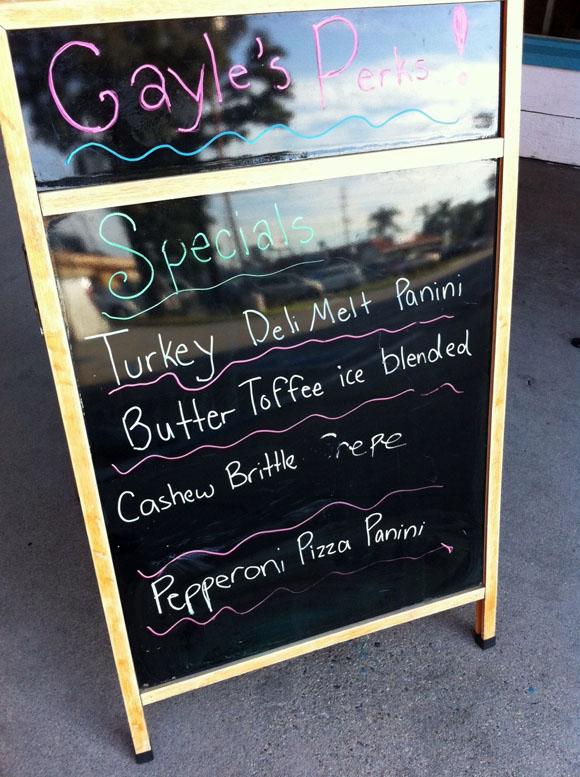 Gayle's Perks!
Specials
Turkey Deli Melt Panini
Butter Toffee ice blended
Cashew Brittle Crepe
Pepperoni Pizza Panini